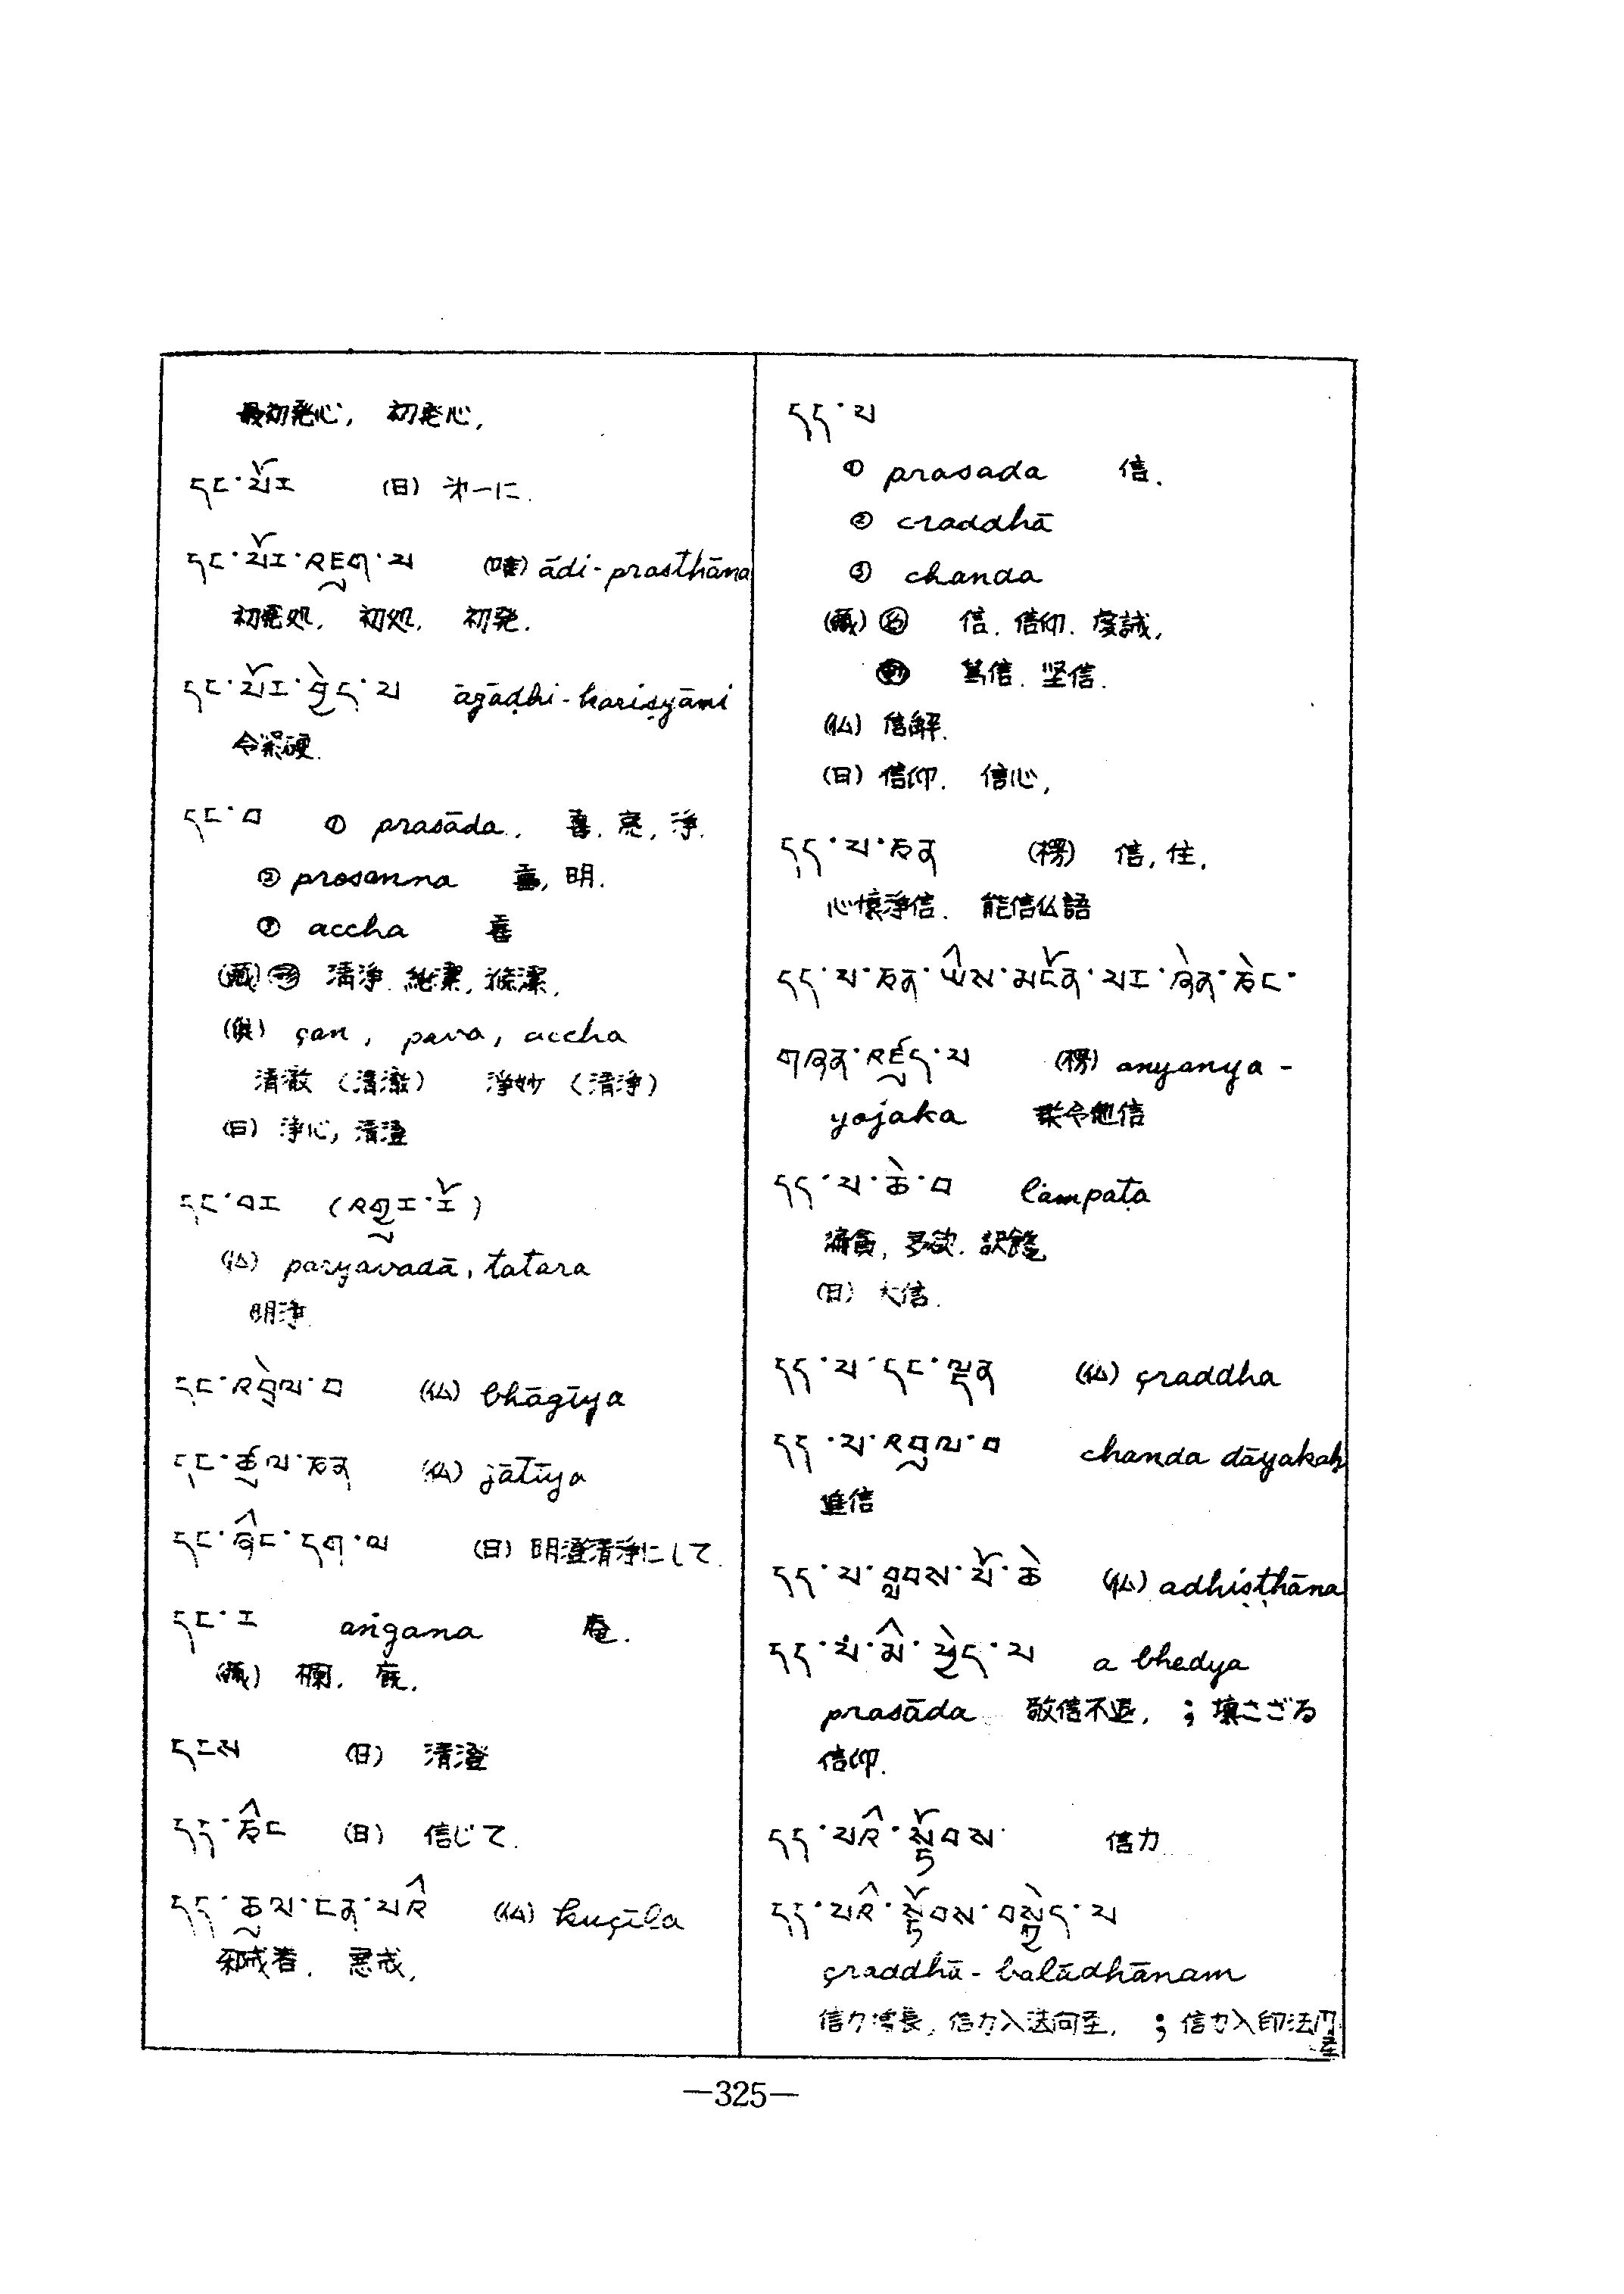 最初発心, 初発心,
དང་པོར (日) 才一に.
དང་པོར་འཇུག་པ (唯) ādi-prasthāna
初発処, 初処, 初発.
དང་པོར་བྱེད་པ āgāḍhi-kariṣyāmi
令緊硬.
དང་བ ① prasāda. 喜. 亮, 淨.
② prosanna 喜, 明.
③ accha 喜
(蔵) 清淨. 純潔,
çan, pava, accha
清澈 (清澈) 淨妙 (清淨)
(日) 浄心, 清澄
དང་བར (འགྱུར་རོ)
(仏) paryavadā, tatara
明浄.
དང་འབྲེལ་བ (仏) bhāgīya
དང་ཚུལ་ཅན (仏) jātīya
དང་ཞིང་དག་ལ (日) 明澄清浄にして.
དང་ར aṅgana 庵.
(蔵) 欄.
དངས (日) 清澄
དད་ཅིང (日) 信じて.
དད་ཚུལ་ངན་པའི (仏) kuçīla
邪戒者. 悪戒,
དད་པ
① prasada 信.
② craddhā
③ chanda
(蔵) 名 信. 信仰. 虔誠,
動 篤信. 坚信.
(仏) 信解.
(日) 信仰. 信心,
དད་པ་ཅན (楞) 信, 住,
心懐浄信. 能信仏語
དད་པ་ཅན་ཡིས་མངོན་པར་ཞེན་ཅེང་
གཞན་འཛུད་པ (楞) anyanya-
yojaka 教令他信
དད་པ་ཆེ་བ lampaṭa
多欲.
(日) 大信.
དད་པ་དང་ལྡན (仏) çraddha
དད་པ་འབུལ་བ chanda dāyakaḥ
進信
དད་པ་རླབས་པོ་ཆེ (仏) adhiṣṭhāna
དད་པ་མི་ཕྱེད་པ a bhedya
prasāda 敬信不退, ; 壊こざる
信仰.
དད་པའི་སྟོབས་ 信力
དད་པའི་སྟོབས་བསྐྱེད་པ
çraddhā-balādhānam
信力増長, 信力入法向至, ; 信力入印法門
至
—325—